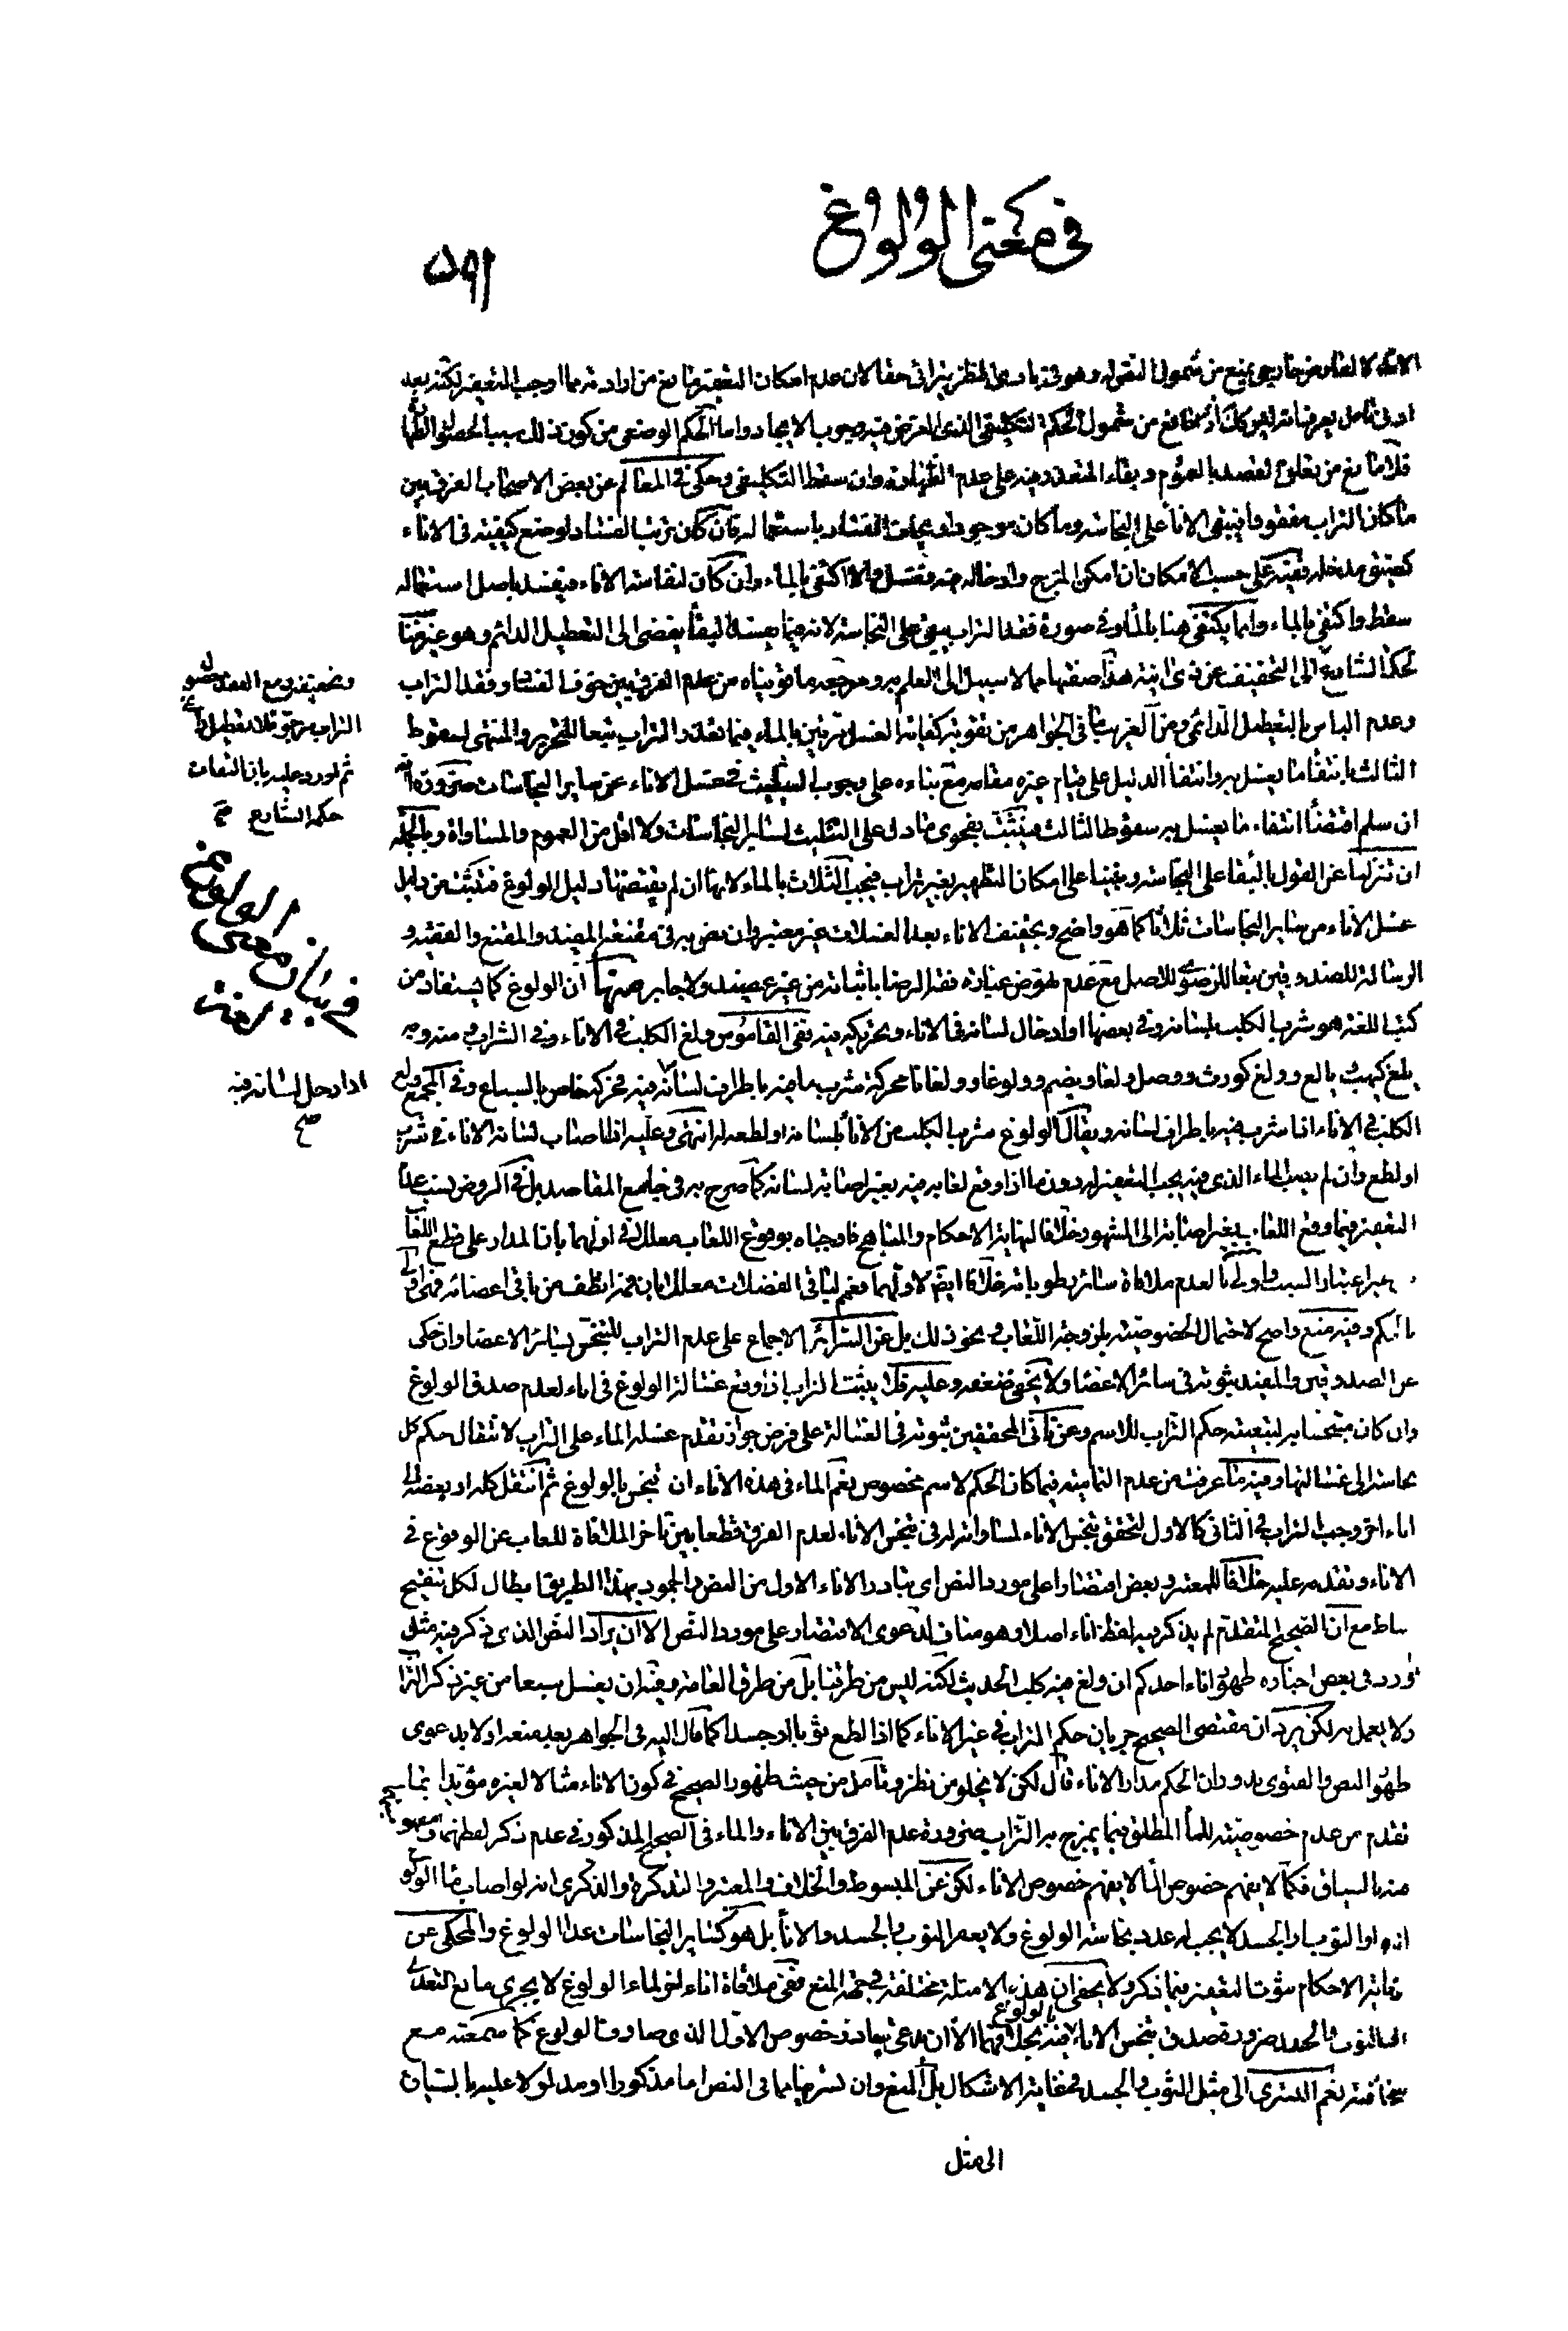 في معنى الولوغ
٥٩١
ادنى تامل يعرف انه ليس كك اذ المانع من شمول الحكم التكليفي الذي المعرض فيه وجوب الايجاد واما الحكم الوضعي من كون ذلك سببا لحصول الطهارة
فلا مانع من تعلق القصد بالعموم وبقاء المتعذر فيه على عدم الطهارة وان سقط التكليف وحكى في المعالم عن بعض الاصحاب الفرق بين
ما كان التراب مفقودا فيبقى الاناء على النجاسة وما كان موجودا ويخاف الفساد باستعماله فان كان ترتب الفساد لوضع كيفيته في الاناء
كضيق مدخله فيه على حسب الامكان ان امكن المزج وادخاله فيه فغسل والا اكتفى بالماء وان كان لنفاسة الاناء فيفسد باصل استعماله
سقط واكتفى بالماء وانما يكتفى هنا بالماء وفي صورة فقد التراب يبقى على النجاسة لانه فيما يفسد البقاء يفضى الى التعطيل الدائم وهو غير مناسب
لحكمة الشارع الى التخفيف عن ذى انية هذا صفتها مما لا سبيل الى العلم به ومرجعه ما قويناه من عدم الفرق بين خوف الفساد وفقد التراب
وعدم الباس بالتعطيل الدائمي ومن الغريب ما في الجواهر من تقوية كفاية الغسل مرتين بالماء فيما تعذر التراب تبعا للتحرير والمنتهى لسقوط
الثالث بانتفاء ما يغسل به وانتفاء الدليل على قيام غيره مقامه مع بناءه على وجوب التثليث في غسل الاناء عن ساير النجاسات ضرورة انه
ان سلم اقتضاء انتفاء ما يغسل به سقوط الثالث فيثبت بفحوى ما دل على التثليث لساير النجاسات ولا اقل من العموم والمساواة وبالجملة
ان تنزلنا عن القول بالبقاء على النجاسة وبنينا على امكان التطهير بغير تراب فيجب الثلاث بالماء لانها ان لم يقتضها دليل الولوغ فتثبت من دليل
غسل الاناء من ساير النجاسات ثلاثا كما هو واضح وتجفيف الاناء بعد الغسلات غير معتبر وان نص به في مقنعة المفيد والمقنع والفقيه و
الرسالة للصدوقين تبعا للرضوى للاصل مع عدم نهوض عبارة فقه الرضا باثباته من غير عضيد ولا جابر منها ان الولوغ كما يستفاد من
كتب اللغة هو شرب الكلب بلسانه وفي بعضها او ادخال لسانه في الاناء وتحريكه فيه ففي القاموس ولغ الكلب في الاناء وفي الشراب ومنه وبه
يلغ كيهب يالغ وولغ كورث ووجل ولغا ويضم وولوغا وولغانا محركة شرب ما فيه باطراف لسانه فيه فحركه خاص بالسباع وفي المجمع ولغ
الكلب في الاناء اذا شرب فيه باطراف لسانه ويقال الولوغ شرب الكلب من الاناء بلسانه او لطعه له انتهى وعليه اذا اصاب لسانه الاناء في شرب
او لطع وان لم يصب الماء الذى فيه يجب التعفير له دون ما اذا وقع لعابه فيه بغير اصابة لسانه كما صرح به في جامع المقاصد بل في الروض نسب عدم
التعفير فيما وقع اللعاب بغير اصابة الى المشهور خلافا لنهاية الاحكام والمناهج فاوجباه بوقوع اللعاب معللا في اولهما بان المدار على قطع اللعاب
بالحكم وفيه منع واضح لاحتمال الخصوصية بلزوجة اللعاب ونحو ذلك بل عن السرائر الاجماع على عدم التراب للتنجس بسائر الاعضا وان حكى
عن الصدوقين والمفيد ثبوته في سائر الاعضا ولا يخفى ضعفه وعليه فلا يثبت التراب اذا وقع غسالة الولوغ في اناء لعدم صدق الولوغ
وان كان متنجسا به لتبعية حكم التراب للاسم وعن ثاني المحققين ثبوته في الغسالة على فرض جواز تقدم غسله الماء على التراب لانتقال حكم كل
نجاسة الى غسالتها وفيه ما عرفت من عدم التمامية فيما كان الحكم لاسم مخصوص نعم الماء في هذه الاناء ان تنجس بالولوغ ثم انتقل كله او بعضه الى
اناء اخر وجب التراب في الثاني كالاول لتحقق تنجس الاناء لمساواته له في تنجس الاناء لعدم الفرق قطعا بين تاخر الملاقاة للعاب عن الوقوع في
الاناء وتقدمه عليه خلافا للمعتبر وبعض اقتصارا على مورد النص اى تبادر الاناء الاول من النص والجمود بهذا الطريق ابطال لكل تنقيح
مناط مع ان الصحيح المتقدم لم يذكر فيه لفظ اناء اصلا وهو مناف لدعوى الاقتصار على مورد النص الا ان يراد النص الذى ذكر فيه مثلى
ورد في بعض اخباره طهور اناء احدكم ان ولغ فيه كلب الحديث لكنه ليس من طرقنا بل من طرق العامة وفيه ان يغسل سبعا من غير ذكر التراب
ولا يعمل به لكن يرد ان مقتضى الصحيح جريان حكم التراب في غير الاناء كما اذا لطع ثوبا او جسدا كما قال اليه في الجواهر بعد منعه اولا بدعوى
ظهور النص والفتوى بدوران الحكم مدار الاناء قال لكن لا يخلو من نظر وتامل من حيث ظهور الصحيح في كون الاناء مثالا لغيره مؤيدا بما
تقدم من عدم خصوصية للماء المطلق فيما يمزج به التراب ضرورة عدم الفرق بين الاناء والماء في الصحيح المذكور في عدم ذكر لفظهما ومفهوميته
منه بالسياق فكما لا يفهم خصوص الماء لا يفهم خصوص الاناء لكن عن المبسوط والخلاف والمعتبر والتذكرة والذكرى انه لو اصاب ماء الولوغ
اناء او الثوب او الجسد لا يجب له عدد نجاسة الولوغ ولا يعفر الثوب والجسد والاناء بل هو كساير النجاسات عدا الولوغ والمحكى عن
نهاية الاحكام ثبوت التعفير فيما ذكر ولا يخفى ان هذه الامثلة مختلفة في جهة المنع ففي ملاقاة اناء اخر لماء الولوغ لا يجرى مانع التعدى
الى الثوب والجسد ضرورة صدق تنجس الاناء بالولوغ فيه بخلافهما الا ان يدعى تبادر خصوص الاول الذى صادف الولوغ كما سمعته مع
سخافته نعم التسرى الى مثل الثوب والجسد في غاية الاشكال بل المنع وان لشرفيا بما في النص اما مذكورا او مدلولا عليه بالسياق
الى مثل
التراب مرجو فلا تعطيل دائمي
ثم اورد عليه بان التفات
حكمة الشارع صح
في بيان معنى الولوغ لغة
اذا دخل لسانه فيه
صح